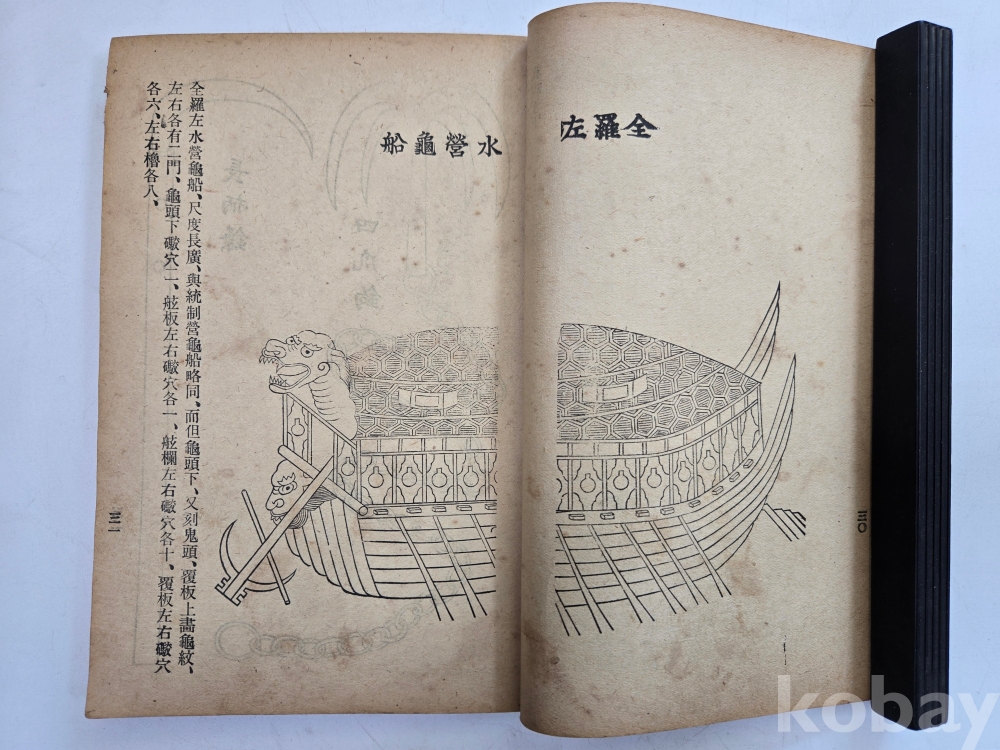 全羅左水營龜船
全羅左水營龜船、尺度長廣、與統制營龜船略同、而但龜頭下、又刻鬼頭、覆板上畵龜紋、
左右各有二門、龜頭下礮穴二、舷板左右礮穴各一、舷欄左右礮穴各十、覆板左右礮穴
各六、左右櫓各八、
三〇
三一
kobay